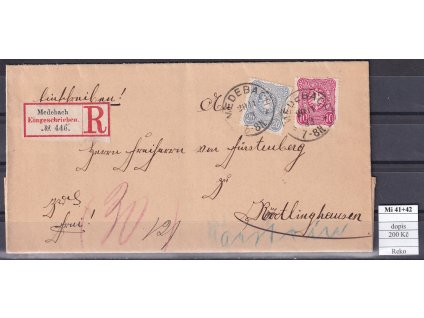 Einschreiben!
Medebach
Eingeschrieben.
№ 446.
R
MEDEBACH
7-8N
MEDEBACH
7-8N
10
Herrn Freiherrn von Fürstenberg
zu
Rödlinghausen
frei!
30
/21
Mi 41+42
dopis
200 Kč
Reko